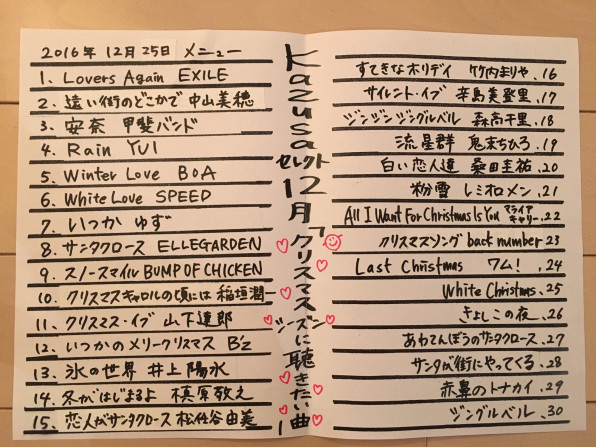 2016年 12月 25日 メニュー
1. Lovers Again EXILE
2. 遠い街のどこかで 中山美穂
3. 安奈 甲斐バンド
4. Rain YUI
5. Winter Love BoA
6. White Love SPEED
7. いつか ゆず
8. サンタクロース ELLEGARDEN
9. スノースマイル BUMP OF CHICKEN
10. クリスマスキャロルの頃には 稲垣潤一
11. クリスマス・イブ 山下達郎
12. いつかのメリークリスマス B'z
13. 氷の世界 井上陽水
14. 冬がはじまるよ 槙原敬之
15. 恋人がサンタクロース 松任谷由美
Kazusa
セレクト
12月
「クリスマス
シーズン
に聴きたい曲」
すてきなホリデイ 竹内まりや.16
サイレント・イブ 辛島美登里.17
ジンジンジングルベル 森高千里.18
流星群 鬼束ちひろ.19
白い恋人達 桑田圭祐.20
粉雪 レミオロメン.21
All I Want For Christmas Is You マライアキャリー.22
クリスマスソング back number 23
Last Christmas ワム! .24
White Christmas.25
きよしこの夜.26
あわてんぼうのサンタクロース.27
サンタが街にやってくる.28
赤鼻のトナカイ.29
ジングルベル.30